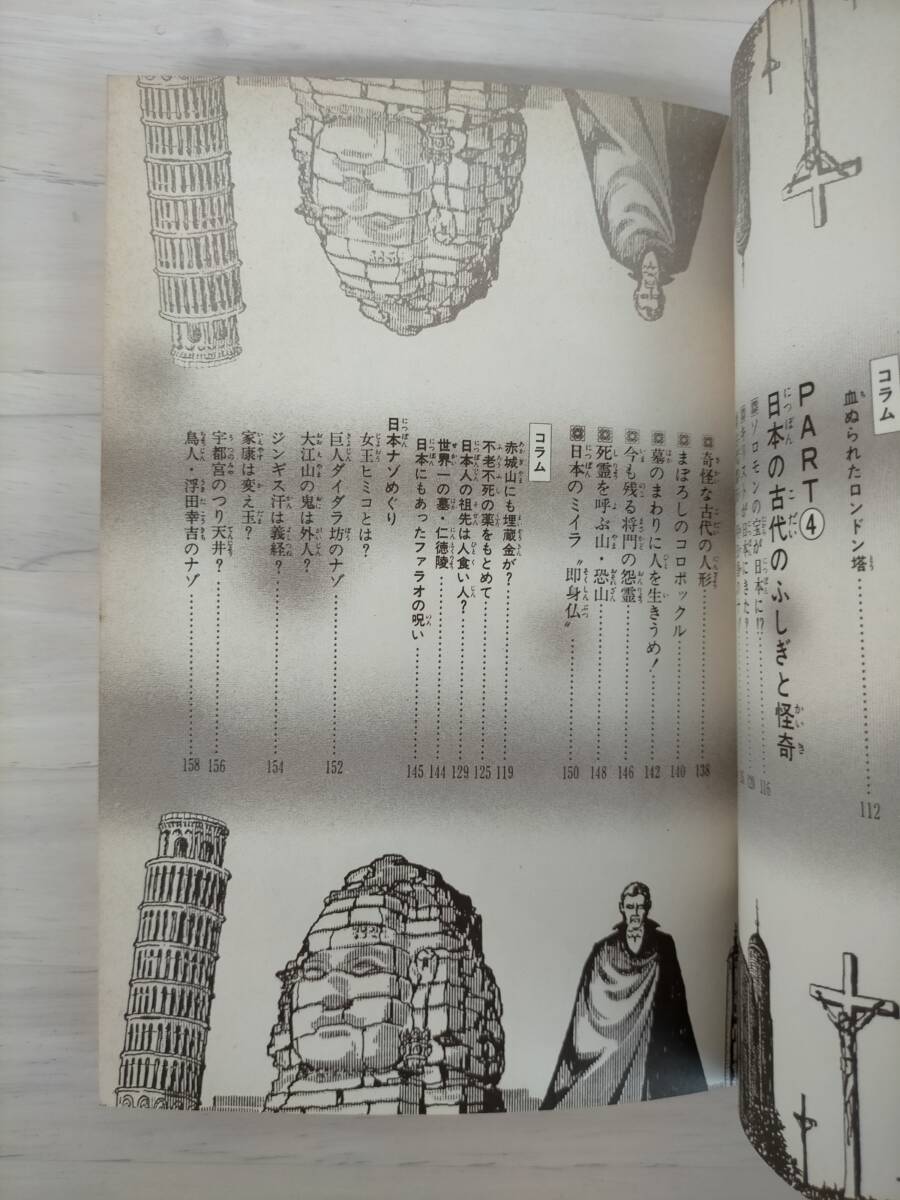 コラム
血ぬられたロンドン塔……………112
PART④
日本の古代のふしぎと怪奇
ソロモンの宝が日本に!?……116
が日本にきた?
奇怪な古代の人形……………138
まぼろしのコロポックル……………140
墓のまわりに人を生きうめ!……………142
今も残る将門の怨霊……………146
死霊を呼ぶ山・恐山……………148
日本のミイラ〝即身仏〟……………150
コラム
赤城山にも埋蔵金が?……………119
不老不死の薬をもとめて……………125
日本人の祖先は人食い人?……………129
世界一の墓・仁徳陵……………144
日本にもあったファラオの呪い……………145
日本ナゾめぐり
女王ヒミコとは?……………
巨人ダイダラ坊のナゾ……………152
大江山の鬼は外人?……………
ジンギス汗は義経?……………154
家康は変え玉?……………
宇都宮のつり天井?……………156
鳥人・浮田幸吉のナゾ……………158